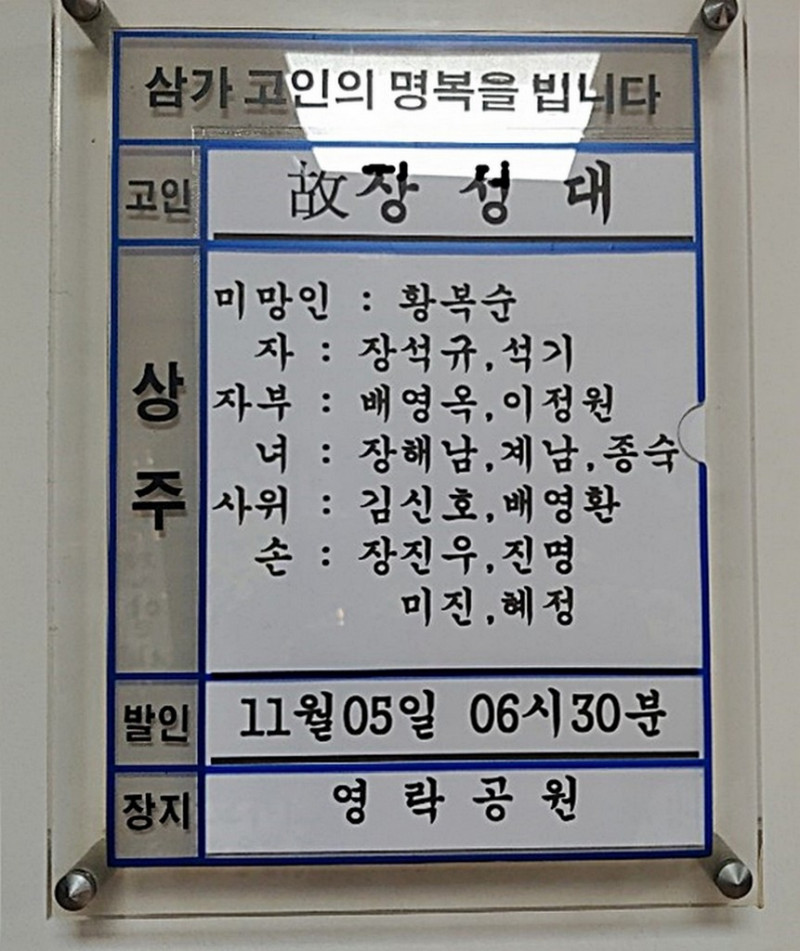 삼가 고인의 명복을 빕니다
고인
故 장 성 대
상주
미망인 : 황복순
자 : 장석규,석기
자부 : 배영옥,이정원
녀 : 장해남,계남,종숙
사위 : 김신호,배영환
손 : 장진우,진명
미진,혜정
발인
11월05일 06시30분
장지
영 락 공 원